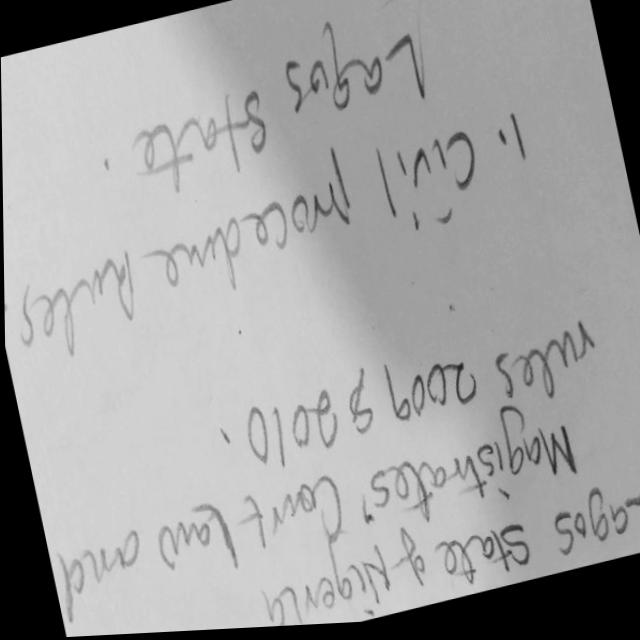 agos State of Nigeria
Magistrates' Court Law and
rules 2009 & 2010.
1. Civil Procedure Rules
Lagos State.